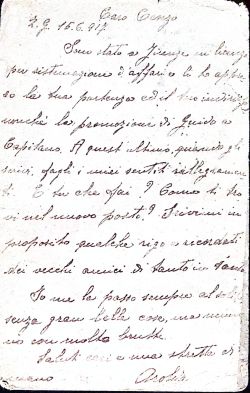 Caro Cenzo
Z. G. 15.6.917
Sono stato a Firenze in licenza
per sistemazione d'affari e là ho appre-
so la tua partenza ed il tuo indirizzo
nonchè la promozione di Guido a
Capitano. A quest'ultimo, quando gli
scrivi, fagli i miei sentiti rallegramen-
ti. E tu che fai? Come ti tro
vi nel nuovo posto? Scrivimi in
proposito qualche rigo e ricordati
dei vecchi amici di tanto in tanto
Io me la passo sempre al solito
senza gran belle cose, ma nemme
no con molto brutte.
Saluti cari e una stretta di
mano